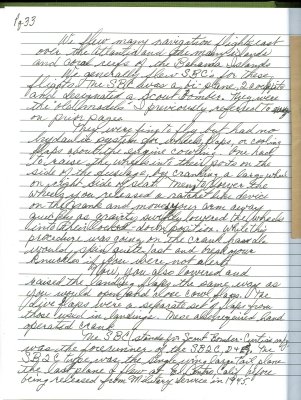 Pg 33
We flew many navigation flights east
over the Atlantic and the many islands
and coral reefs of the Bahama Islands
We generally flew SBC's for these
flights. The SBC was a bi-plane, 2 cockpits
and designated a Scout bomber. They were
the "old models" I previously referred to
on prior pages.
They were fun to fly but had no
hydraulic system for wheels, flaps, or cooling
flaps about the engine cowling. One had
to raise the wheels into their ports on the
side of the fuselage, by cranking a large wheel
on right side of seat. Then to lower the
wheels you released a ratchet like device
on the and move your arm away
quickly as gravity swiftly lowered the wheels
into their locked-down position. While this
procedure was going on the crank handle
would spin quite fast and break your
knuckles if you were not alert.
Now, you also lowered and
raised the landing flaps the same way as
you would open and close cowl flaps. The
dive flaps were a separate set of flaps from
those used in landing. These also required hand
operated crank
The SBC stands for Scout Bomber Curtiss and
was the forerunner of the SB2C, The
SB2C type was the single wing, tail plane
the last plane I flew at El Centro, Calif. before
being released from Military Service in 1945.